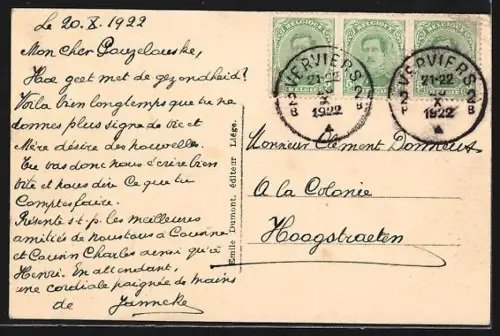 Le 20. X. 1922
Mon cher
Hoe geet met de gezondheid?
Voilà bien longtemps que tu ne
donnes plus signe de vie et
Mère désire des nouvelles.
Tu vas donc nous écrire bien
vite et nous dire ce que tu
Comptes faire.
Présente s.t.p. les meilleures
amitiés de nous tous à Cousine
et Cousin Charles ainsi qu'à
Henri. En attendant,
une cordiale poignée de mains
de Janneke
Emile Dumont, éditeur Liège.
BELGIQUE BELGIQUE BELGIQUE
VERVIERS 2
21-22
X
1922
2B
VERVIERS 2
21-22
X
1922
2B
Monsieur Clément Donneux
A la Colonie
Hoogstraeten